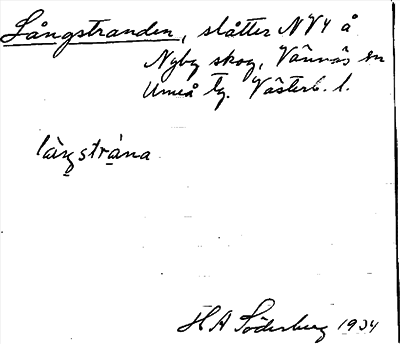 Långstranden, slåtter NV4 å
Nyby skog, Vännäs sn
Umeå tg. Västerb. l.
làŋstràna
H A Söderberg 1934